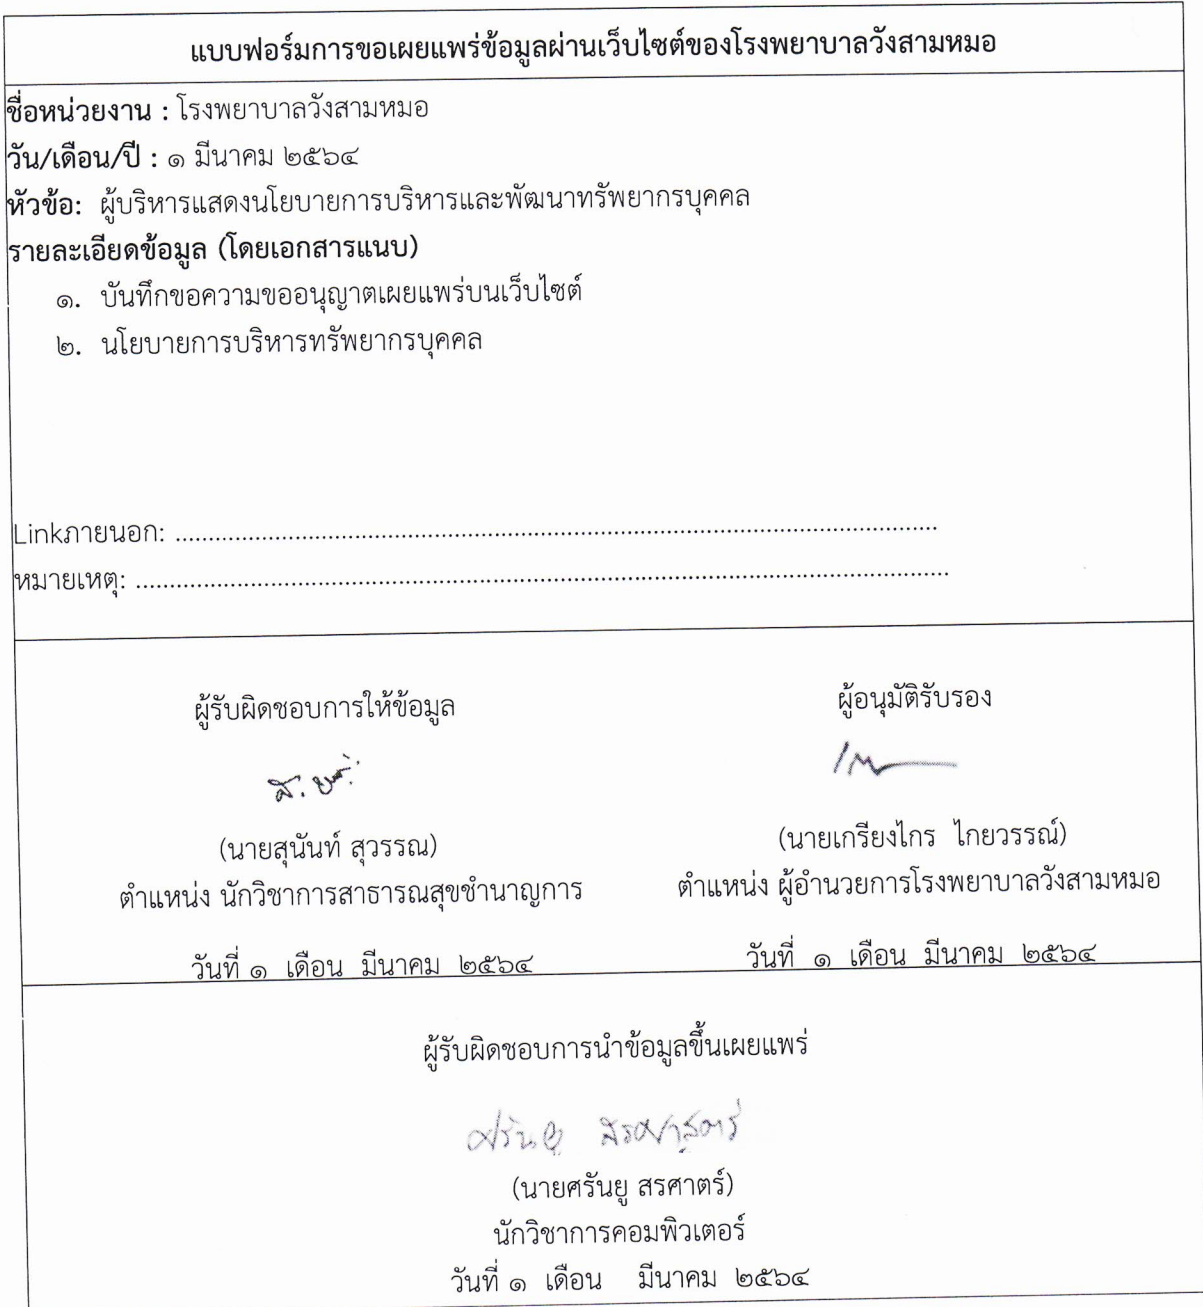 แบบฟอร์มการขอเผยแพร่ข้อมูลผ่านเว็บไซต์ของโรงพยาบาลวังสามหมอ
ชื่อหน่วยงาน : โรงพยาบาลวังสามหมอ
วัน/เดือน/ปี : ๑ มีนาคม ๒๕๖๔
หัวข้อ: ผู้บริหารแสดงนโยบายการบริหารและพัฒนาทรัพยากรบุคคล
รายละเอียดข้อมูล (โดยเอกสารแนบ)
๑. บันทึกขอความขออนุญาตเผยแพร่บนเว็บไซต์
๒. นโยบายการบริหารทรัพยากรบุคคล
Linkภายนอก: ....................................................................................................................
หมายเหตุ: ............................................................................................................................
ผู้รับผิดชอบการให้ข้อมูล
(นายสุนันท์ สุวรรณ)
ตำแหน่ง นักวิชาการสาธารณสุขชำนาญการ
วันที่ ๑ เดือน มีนาคม ๒๕๖๔
ผู้อนุมัติรับรอง
(นายเกรียงไกร ไกยวรรณ์)
ตำแหน่ง ผู้อำนวยการโรงพยาบาลวังสามหมอ
วันที่ ๑ เดือน มีนาคม ๒๕๖๔
ผู้รับผิดชอบการนำข้อมูลขึ้นเผยแพร่
(นายศรันยู สรศาตร์)
นักวิชาการคอมพิวเตอร์
วันที่ ๑ เดือน มีนาคม ๒๕๖๔